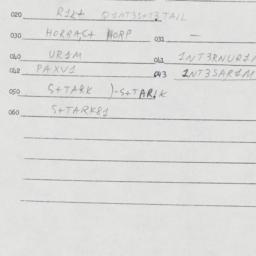 020 R1K+ Q1NT3S+3TAIL
030 HORRAS+ HORP 031 —
040 UR1M 041 1NT3RNUR1M
042 PAXV1 043 1NT3SAR1M
050 S+TARK )-S+TARK
060 S+TARK81